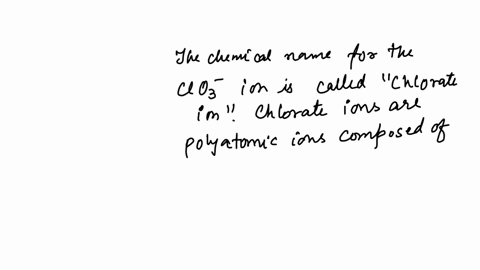 The chemical name for the
ClO₃⁻ ion is called "Chlorate
ion". Chlorate ions are
polyatomic ions composed of